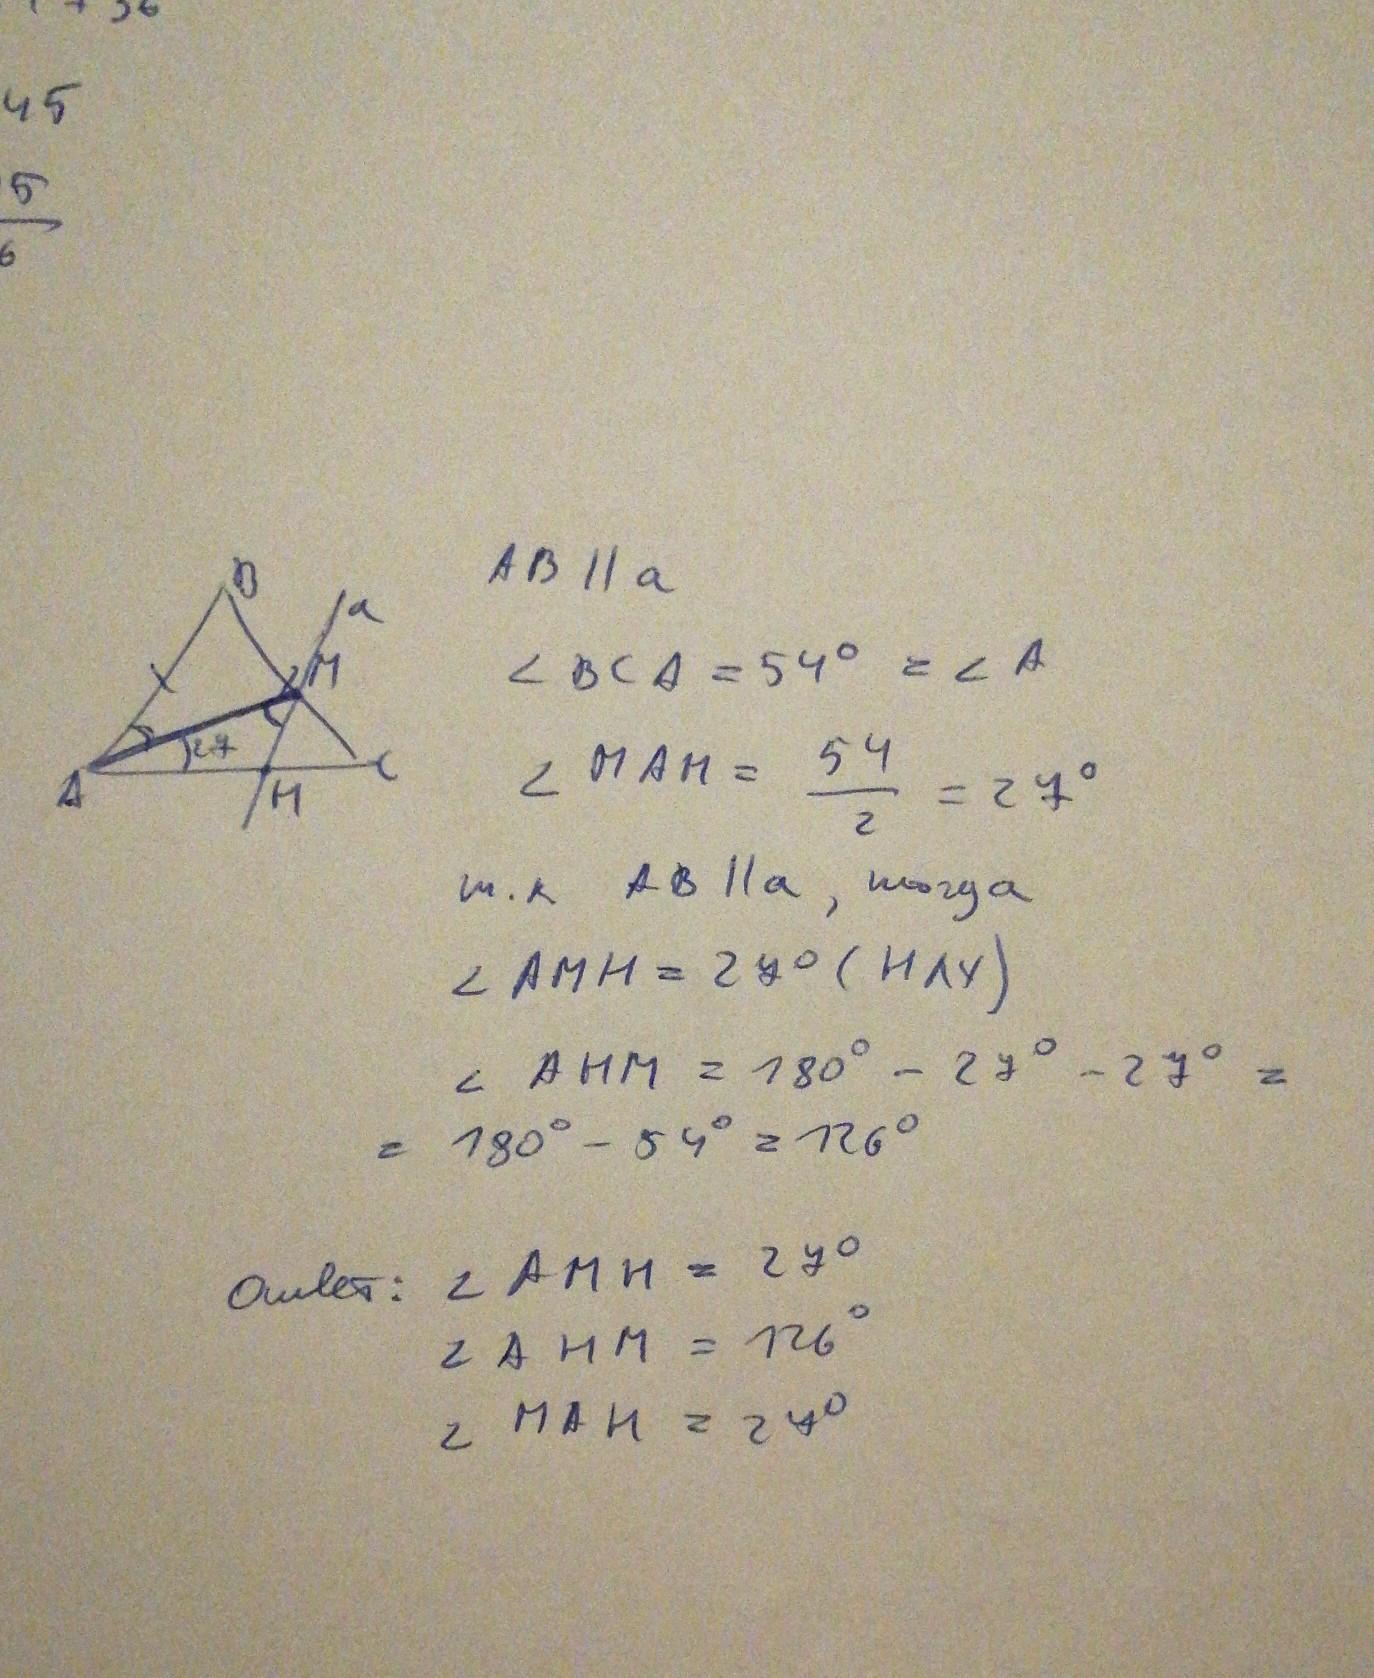 45
5
6
B
a
M
27
A
H
C
AB || a
∠BCA = 54° = ∠A
∠MAH = 54/2 = 27°
т.к AB || a, тогда
∠AMH = 27° (НЛУ)
∠AHM = 180° - 27° - 27° =
= 180° - 54° = 126°
Ответ: ∠AMH = 27°
∠AHM = 126°
∠MAH = 27°